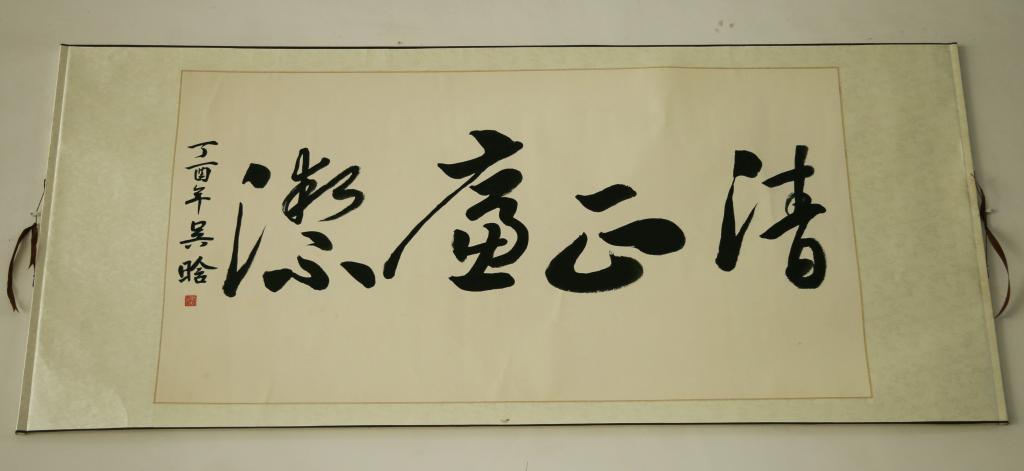 清正廉潔
丁酉年吴晗